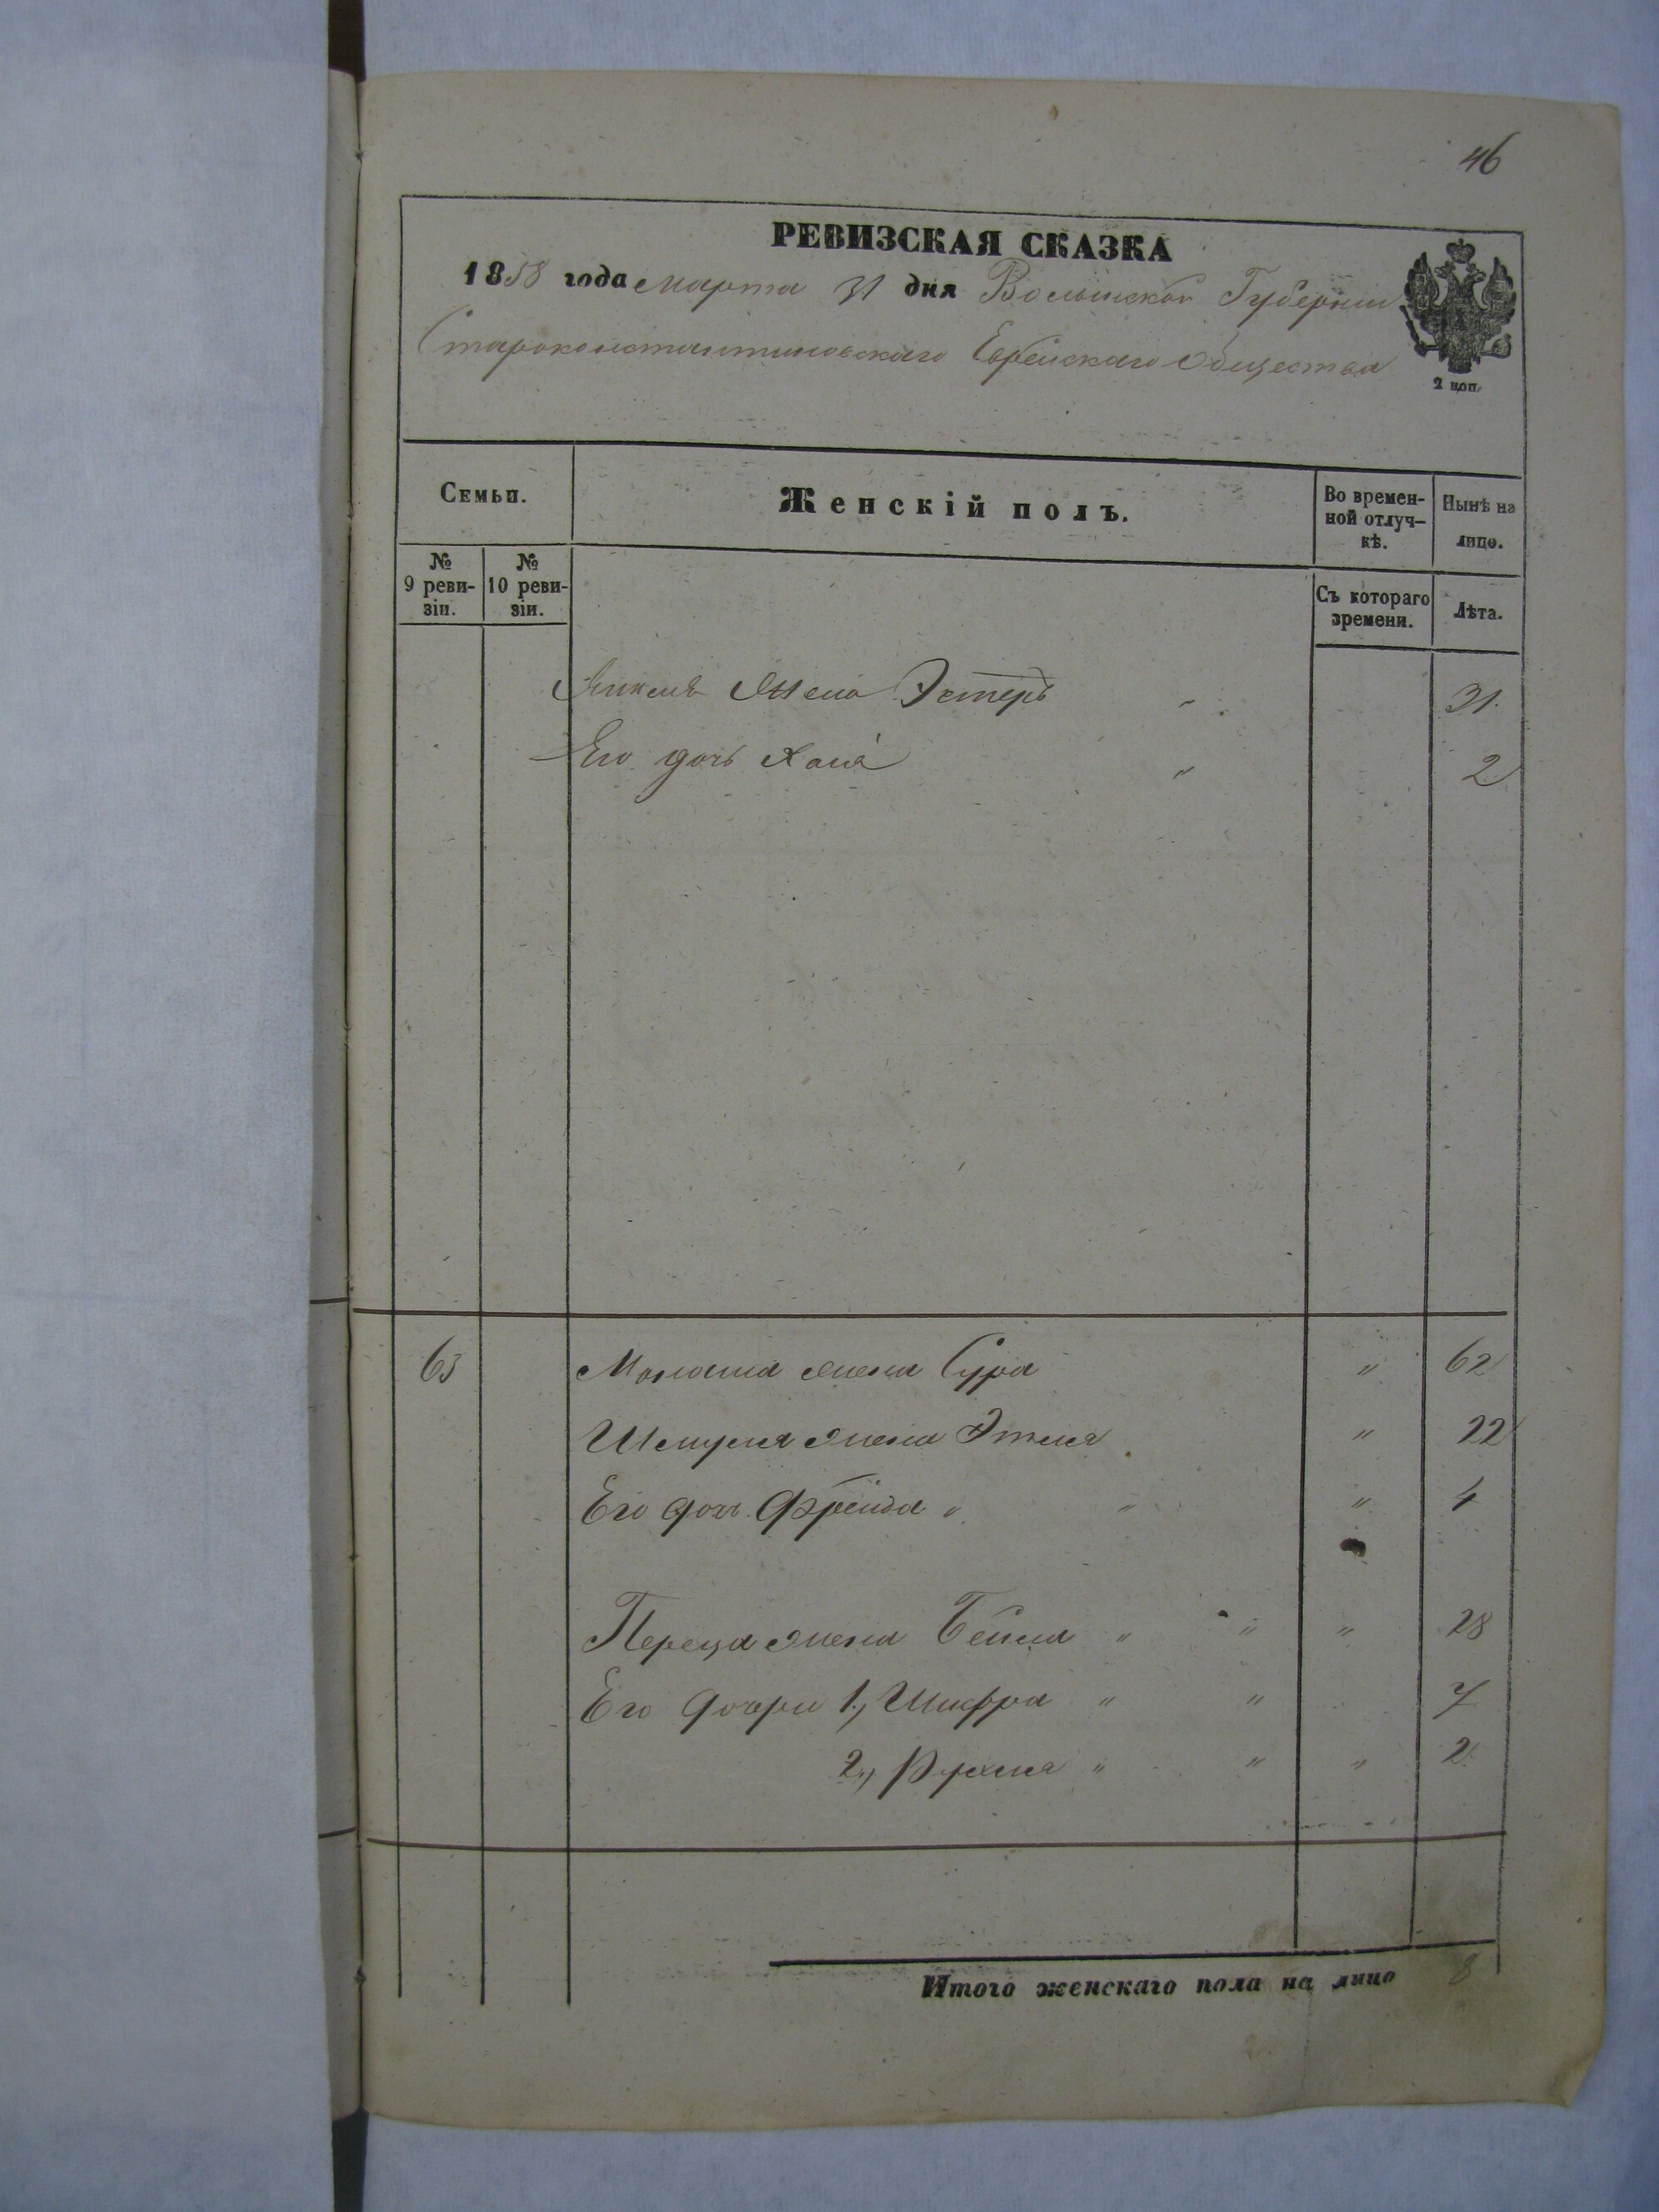 46
РЕВИЗСКАЯ СКАЗКА
1858 года марта 31 дня Волынской Губернии
Староконстантиновскаго Еврейскаго Общества
2 коп.
Семьи.
Женскій полъ.
Во времен-
ной отлуч-
кѣ.
Нынѣ на
лицо.
№
9 реви-
зіи.
№
10 реви-
зіи.
Съ котораго
времени.
Лѣта.
жена Эстеръ " 31.
Его дочь Хана " 2
63 жена Сура " 62
Шмуля жена Этля " 22
Его дочь Фрейда " " " 4
Переца жена Бейла " " " 28
Его дочери 1., Шифра " " 7
2., Рухля " " " 2
Итого женскаго пола на лицо 8